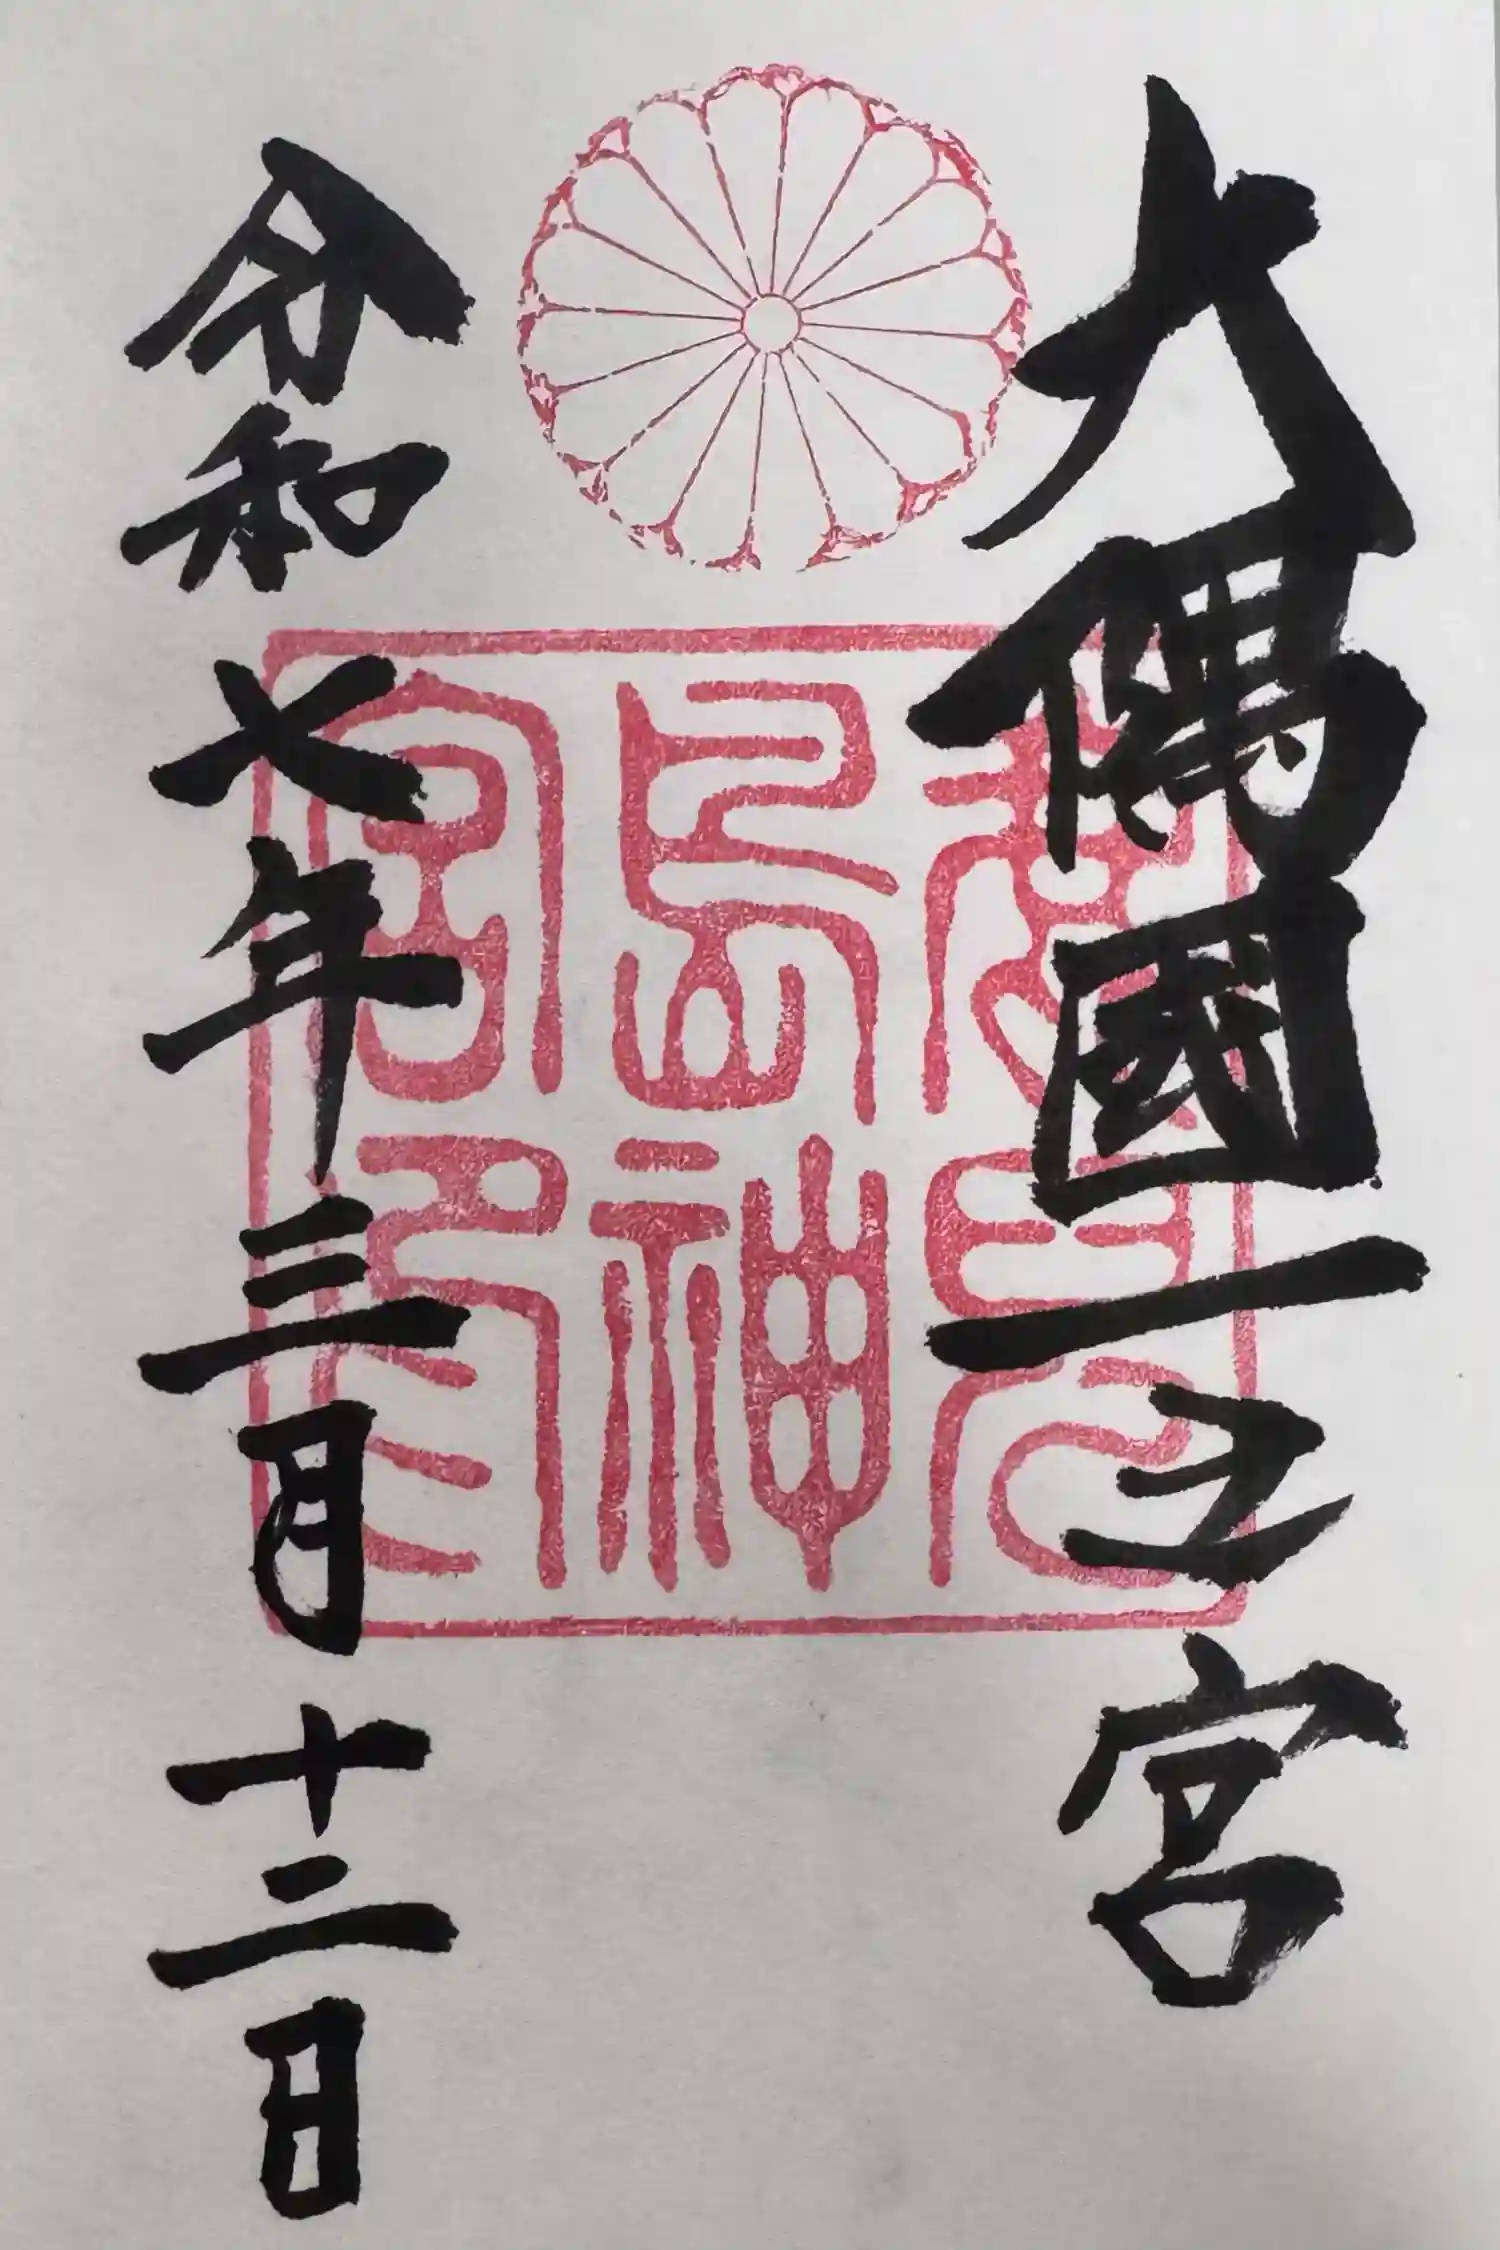 大隅國一之宮
鹿兒
島神
宮印
令和七年三月十二日